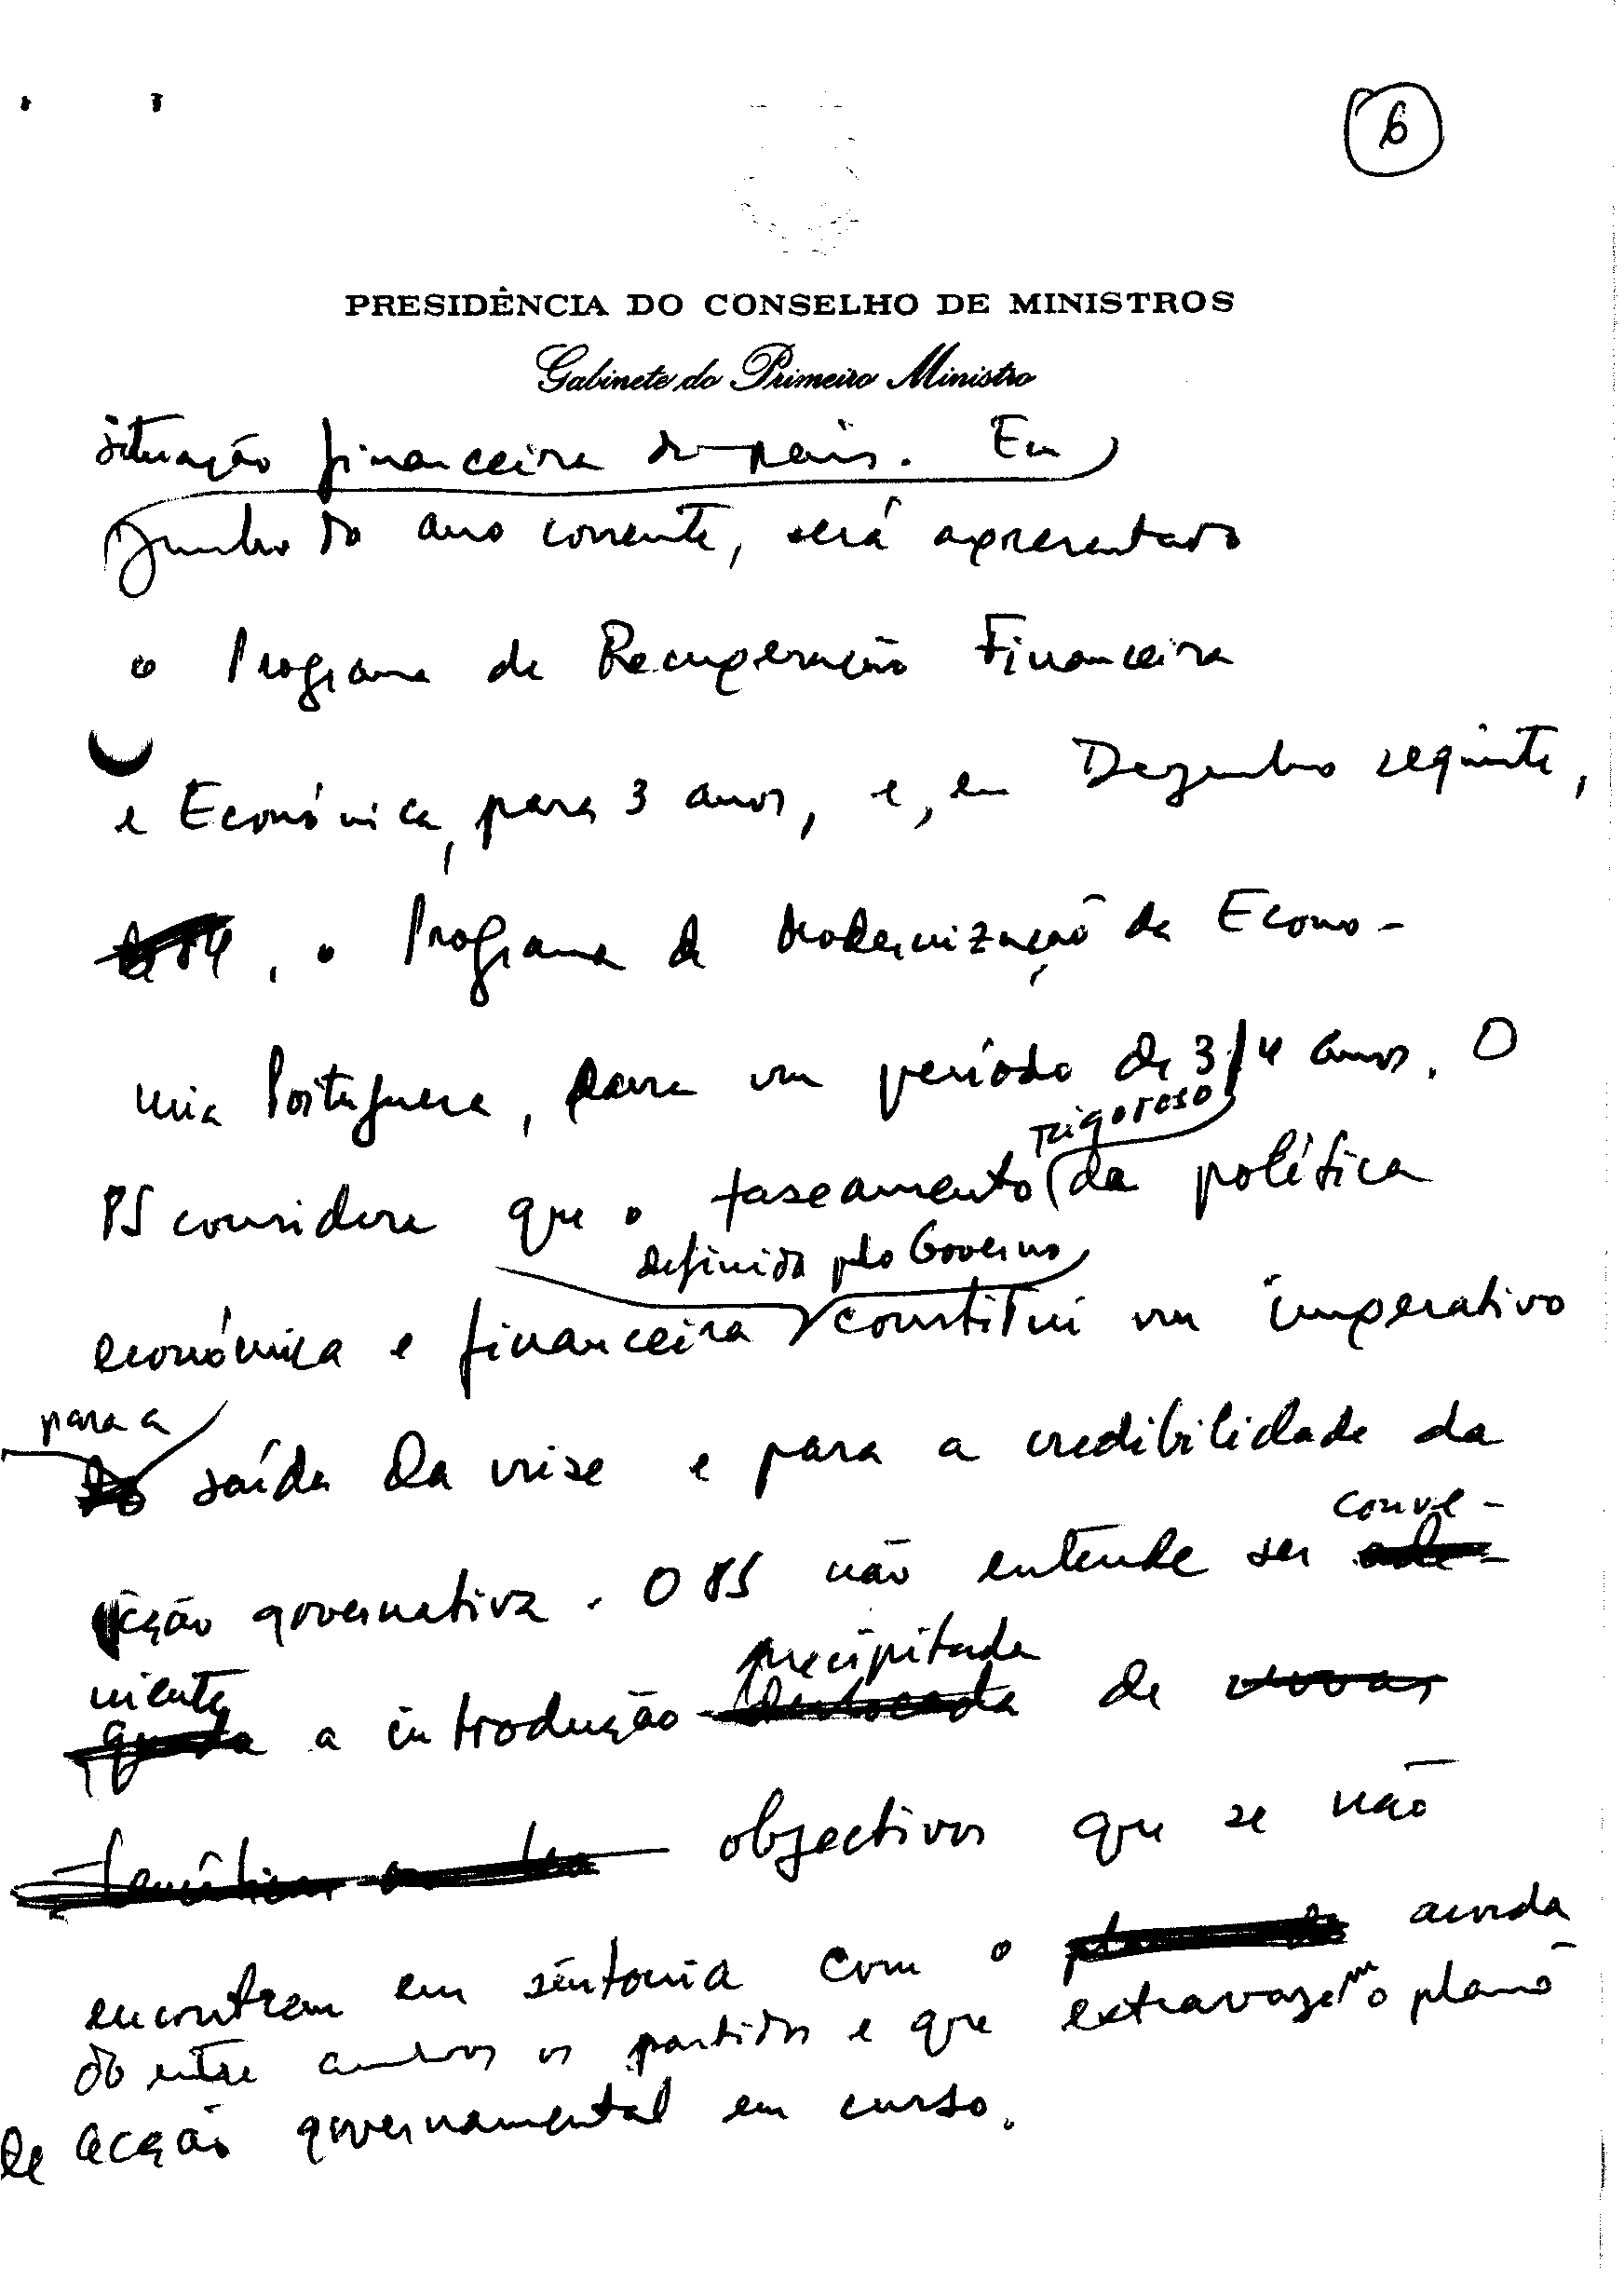 6
PRESIDÊNCIA DO CONSELHO DE MINISTROS
Gabinete do Primeiro Ministro
situação financeira do país. Em
Junho do ano corrente, será apresentado
o Programa de Recuperação Financeira
e Económica, para 3 anos, e, em Dezembro seguinte,
, o Programa de Modernização da Econo-
mia Portuguesa, para um período de 3/4 anos. O
rigoroso
PS considera que o faseamento da política
definida pelo Governo
económica e financeira constitui um imperativo
para a
saída da crise e para a credibilidade da
conve-
acção governativa. O PS não entende ser ade-
precipitada
niente
quada a introdução deslocada de novas
objectivos que se não
encontram em sintonia com o acorda
do entre ambos os partidos e que extravasem o plano
de acção governamental em curso.